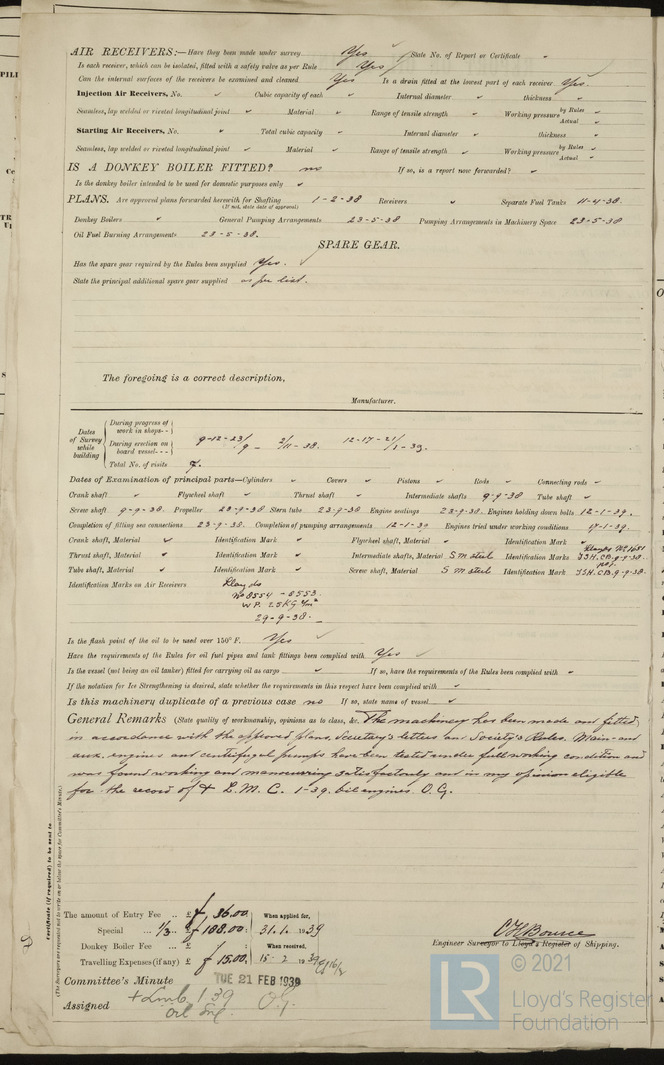 AIR RECEIVERS:—Have they been made under survey Yes ✓ State No. of Report or Certificate
Is each receiver, which can be isolated, fitted with a safety valve as per Rule Yes ✓
Can the internal surfaces of the receivers be examined and cleaned Yes Is a drain fitted at the lowest part of each receiver Yes.
Injection Air Receivers, No. ✓ Cubic capacity of each ✓ Internal diameter ✓ thickness ✓
Seamless, lap welded or riveted longitudinal joint ✓ Material ✓ Range of tensile strength ✓ Working pressure by Rules ✓ Actual ✓
Starting Air Receivers, No. ✓ Total cubic capacity ✓ Internal diameter ✓ thickness ✓
Seamless, lap welded or riveted longitudinal joint ✓ Material ✓ Range of tensile strength ✓ Working pressure by Rules ✓ Actual ✓
IS A DONKEY BOILER FITTED? no If so, is a report now forwarded? ✓
Is the donkey boiler intended to be used for domestic purposes only ✓
PLANS. Are approved plans forwarded herewith for Shafting 1-2-38 Receivers ✓ Separate Fuel Tanks 11-4-38.
(If not, state date of approval)
Donkey Boilers ✓ General Pumping Arrangements 23-5-38 Pumping Arrangements in Machinery Space 23-5-38
Oil Fuel Burning Arrangements 23-5-38.
SPARE GEAR.
Has the spare gear required by the Rules been supplied Yes. ✓
State the principal additional spare gear supplied as per list.
The foregoing is a correct description,
Manufacturer.
Dates of Survey while building
During progress of work in shops--
During erection on board vessel--- 9-12-23/9 - 2/11-38. 12-17-21/1-39.
Total No. of visits 7.
Dates of Examination of principal parts—Cylinders ✓ Covers ✓ Pistons ✓ Rods ✓ Connecting rods ✓
Crank shaft ✓ Flywheel shaft ✓ Thrust shaft ✓ Intermediate shafts 9-9-38 Tube shaft ✓
Screw shaft 9-9-38. Propeller 23-9-38 Stern tube 23-9-38 Engine seatings 23-9-38. Engines holding down bolts 12-1-39.
Completion of fitting sea connections 23-9-38. Completion of pumping arrangements 12-1-39 Engines tried under working conditions 17-1-39.
Crank shaft, Material ✓ Identification Mark ✓ Flywheel shaft, Material ✓ Identification Mark ✓
Thrust shaft, Material ✓ Identification Mark ✓ Intermediate shafts, Material S m steel Identification Marks Lloyds No 1651
Tube shaft, Material ✓ Identification Mark ✓ Screw shaft, Material S m steel Identification Mark
Identification Marks on Air Receivers Lloyds
No 8554 - 8553.
W.P. 25KG
29-9-38.
Is the flash point of the oil to be used over 150° F. Yes ✓
Have the requirements of the Rules for oil fuel pipes and tank fittings been complied with Yes ✓
Is the vessel (not being an oil tanker) fitted for carrying oil as cargo ✓ If so, have the requirements of the Rules been complied with ✓
If the notation for Ice Strengthening is desired, state whether the requirements in this respect have been complied with ✓
Is this machinery duplicate of a previous case no If so, state name of vessel ✓
General Remarks (State quality of workmanship, opinions as to class, &c. The machinery has been made and fitted
in accordance with the approved plans, Secretary's letters and Society's Rules. Main- and
aux. engines and centrifugal pumps have been tested under full working condition and
was found working and manoeuvring satisfactorily and is in my opinion eligible
for the record of + L.M.C. 1-39. oil engines. O.G.
Certificate (if required) to be sent to
(The Surveyors are requested not to write on or below the space for Committee's Minute.)
The amount of Entry Fee .. £ 36.00 When applied for,
Special ... 1/3 .. £ 108.00 31.1. 1939
Donkey Boiler Fee ... £ When received,
Travelling Expenses (if any) £ 15.00 15-2 1939
Engineer Surveyor to Lloyd's Register of Shipping.
Committee's Minute TUE 21 FEB 1939
Assigned + Lmc 1 39 O.G.
Oil Eng.
© 2021
LR Lloyd's Register
Foundation